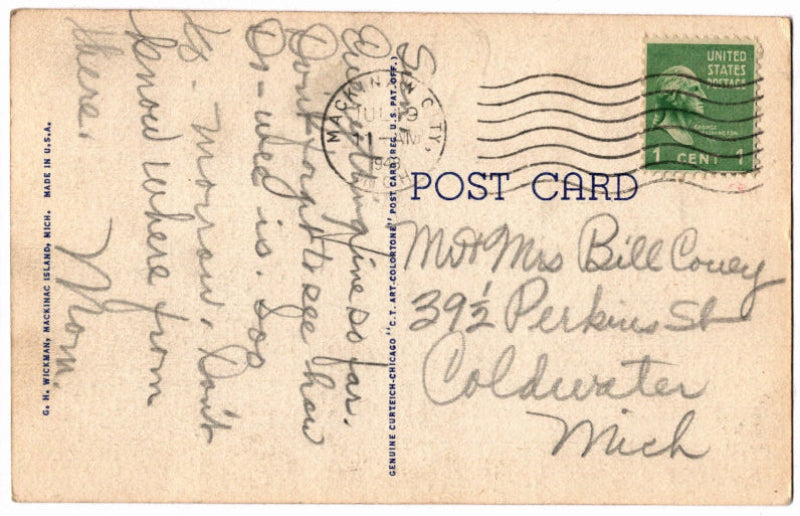 Sun
Everything fine so far.
Don't forget to see how
Dr-wed is. Soo
to-morrow. Don't
know where from
there.
Mom.
G. H. WICKMAN, MACKINAC ISLAND, MICH. MADE IN U.S.A.
GENUINE CURTEICH-CHICAGO "C.T. ART-COLORTONE" POST CARD (REG. U.S. PAT. OFF.)
MACKINAW CITY,
JUL 19
11 AM
UNITED
STATES
POSTAGE
GEORGE
WASHINGTON
1 CENT 1
POST CARD
Mr + Mrs Bill Covey
39½ Perkins St
Coldwater
Mich